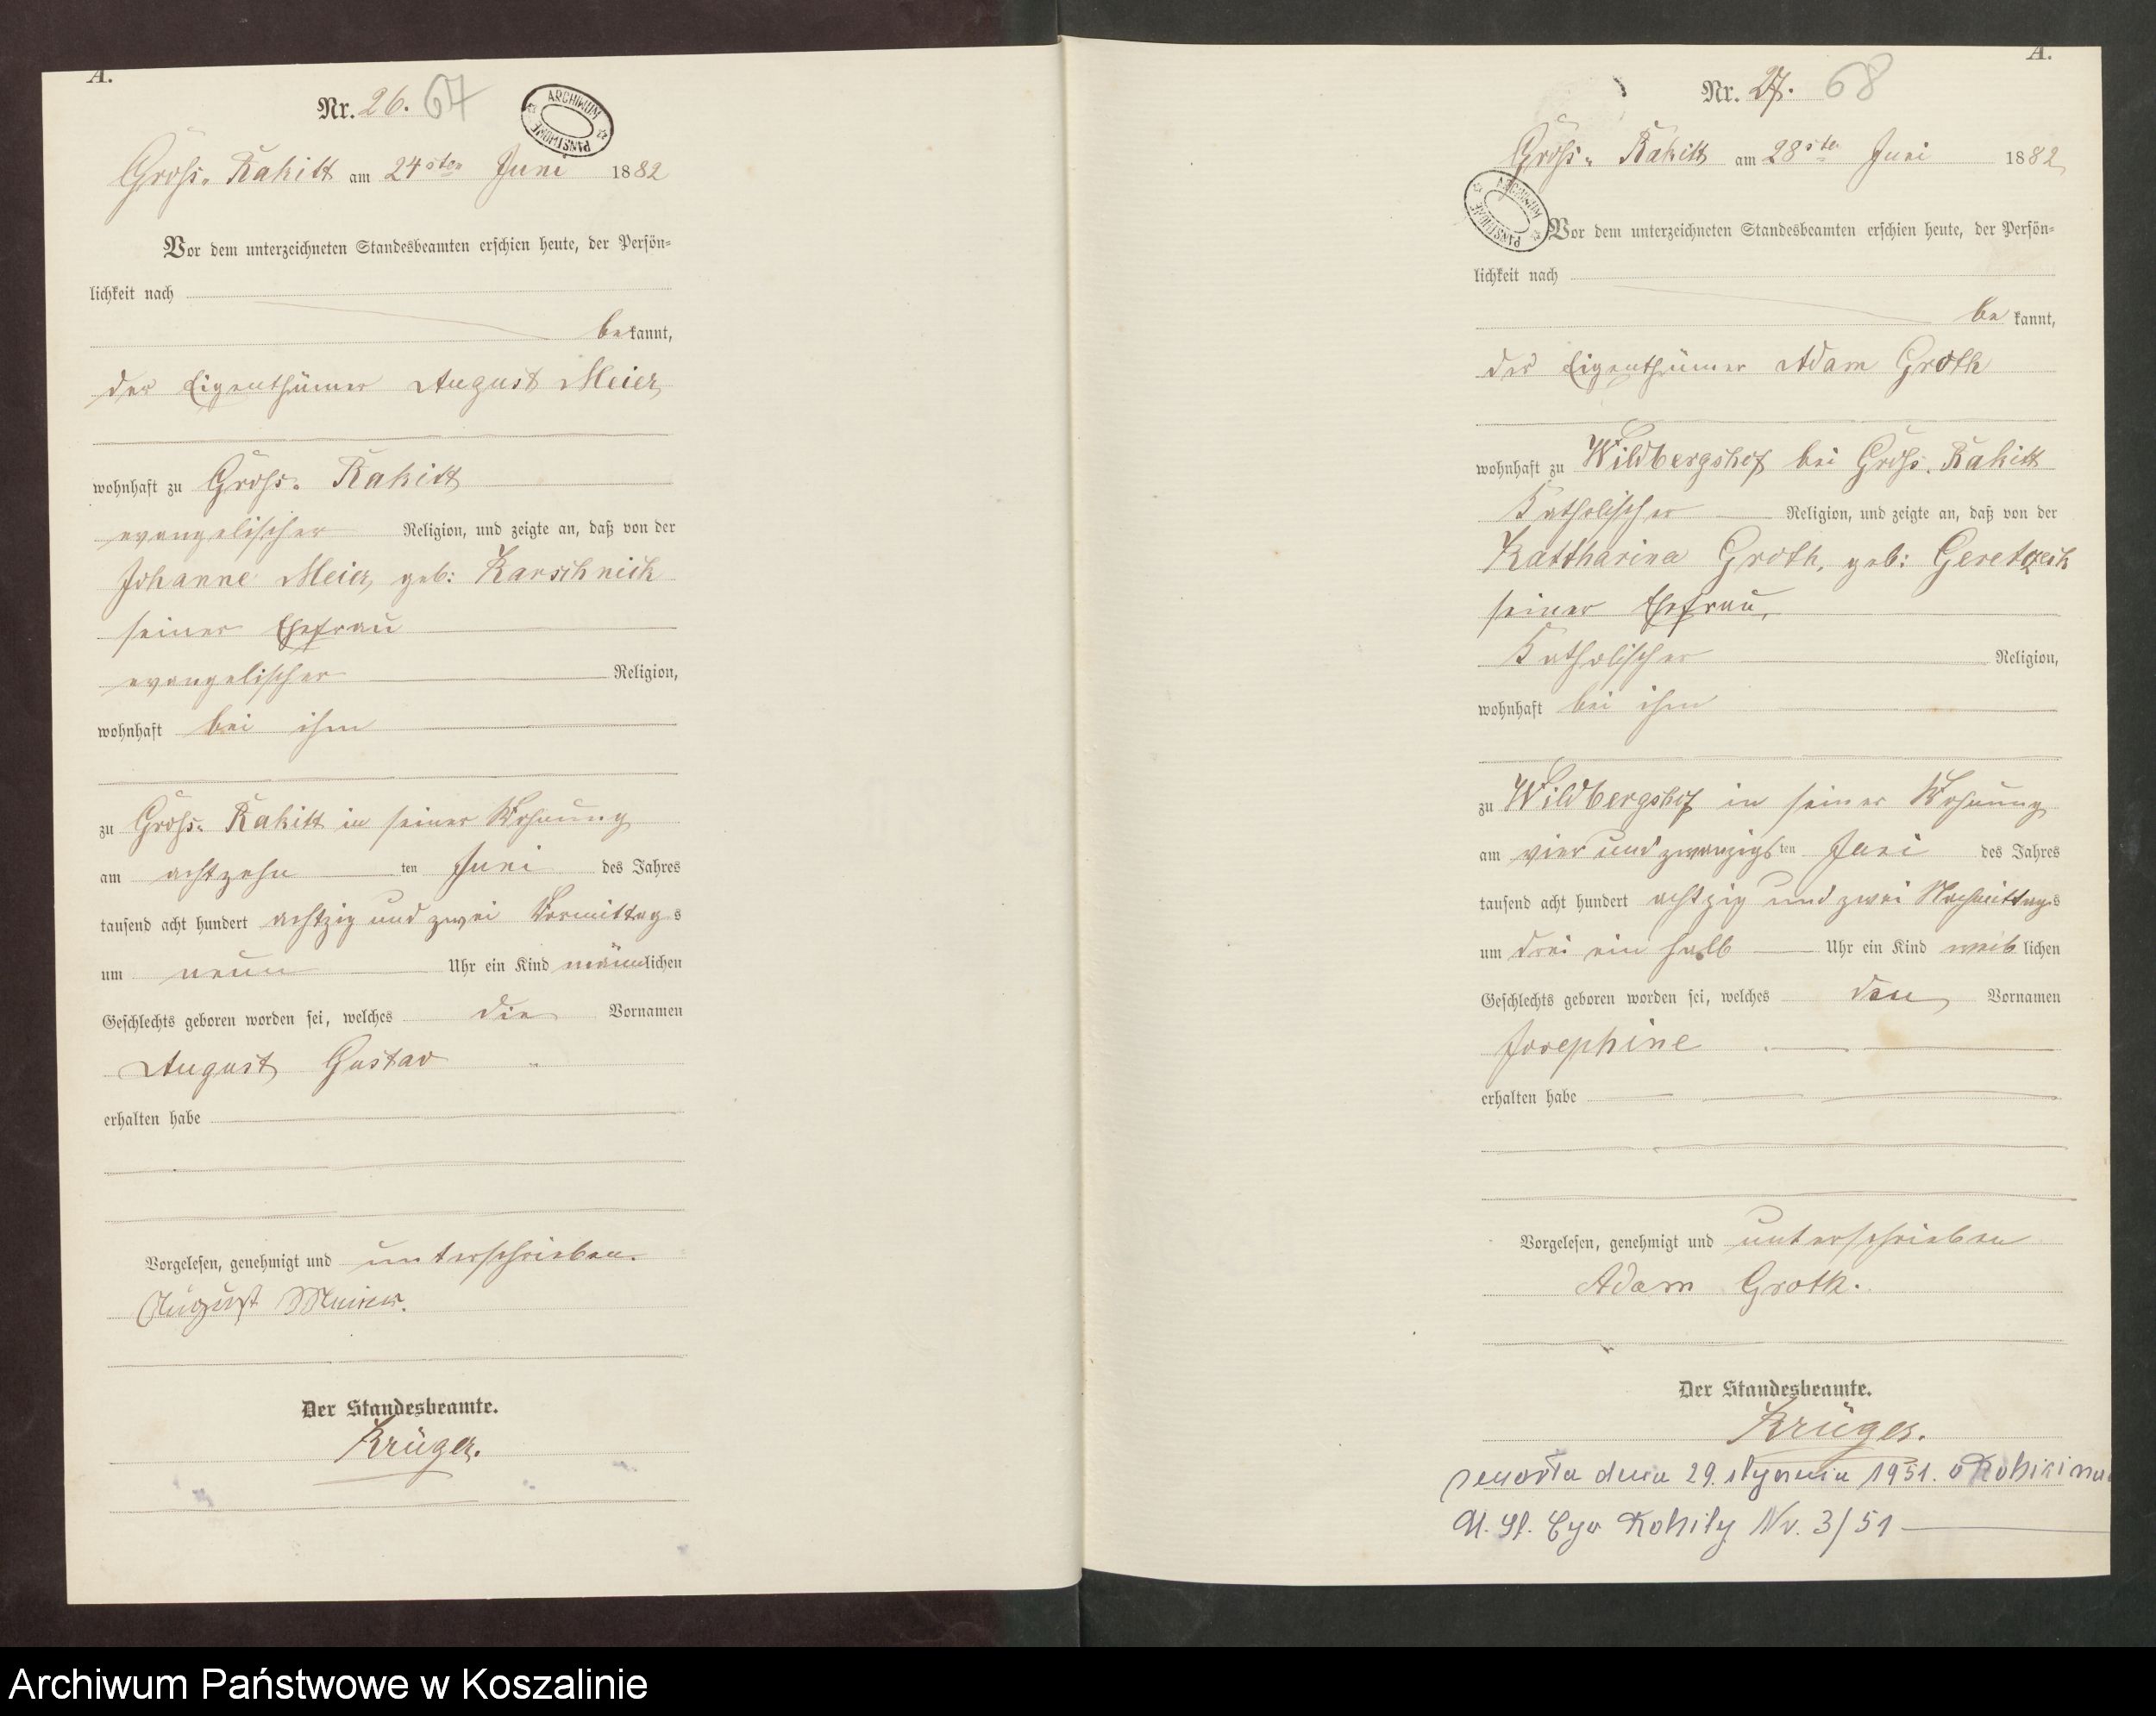 A.
Nr. 26. 67
ARCHIWUM PAŃSTWOWE
Gross-Rakitt am 24sten Juni 1882
Vor dem unterzeichneten Standesbeamten erschien heute, der Persön-
lichkeit nach
bekannt,
der Eigenthümer August Meier,
wohnhaft zu Gross-Rakitt
evangelischer Religion, und zeigte an, daß von der
Johanne Meier, geb: Karschnick
seiner Ehefrau
evangelischer Religion,
wohnhaft bei ihm
zu Gross-Rakitt in seiner Wohnung
am achtzehnten Juni des Jahres
tausend acht hundert achtzig und zwei Vormittags
um neun Uhr ein Kind männlichen
Geschlechts geboren worden sei, welches die Vornamen
August Gustav
erhalten habe
Vorgelesen, genehmigt und unterschrieben.
August Meier.
Der Standesbeamte.
Krüger.
A.
Nr. 27. 68
Gross-Rakitt am 28sten Juni 1882
ARCHIWUM PAŃSTWOWE
Vor dem unterzeichneten Standesbeamten erschien heute, der Persön-
lichkeit nach
bekannt,
der Eigenthümer Adam Groth
wohnhaft zu Wildbergshof bei Gross-Rakitt
Katholischer Religion, und zeigte an, daß von der
Kattharina Groth, geb:
seiner Ehefrau,
Katholischer Religion,
wohnhaft bei ihm
zu Wildbergshof in seiner Wohnung
am vier und zwanzigsten Juni des Jahres
tausend acht hundert achtzig und zwei Nachmittags
um drei ein halb Uhr ein Kind weiblichen
Geschlechts geboren worden sei, welches den Vornamen
Josephine
erhalten habe
Vorgelesen, genehmigt und unterschrieben
Adam Groth.
Der Standesbeamte.
Krüger.
zmarła dnia 29. stycznia 1951.
Nr. 3/51
Archiwum Państwowe w Koszalinie